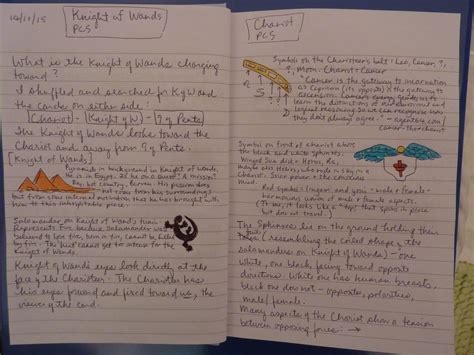 14/11/15
Knight of Wands
PCS
What is the Knight of Wands charging
toward?
I shuffled and searched for KgW and
the cards on either side:
[Chariot] - [Knight of W] - [9 of Pents]
The Knight of Wands looks toward the
Chariot and away from 9 of Pents.
[Knight of Wands]
Pyramids in background in Knight of Wands,
he is in Egypt, as he on a quest? A mission?
hot country, barren. His passion does
not come from outer surroundings
but from some internal motivation that he has brought with
him to this inhospitable place.
Salamander on Knight of Wands tunic
represents Fire because Salamander was
believed to love fire, born in fire, cannot be killed
by fire. The fire cannot get too intense for the
Knight of Wands.
Knight of Wands eyes look directly at the
face of the Charioteer. The Charioteer has
his eyes forward and fixed toward us, the
viewer of the card.
Chariot
PCS
Symbols on the Charioteer's belt: Leo, Cancer, ?,
?, Moon. Chariot = Cancer
"Cancer is the gateway to incarnation
as Capricorn (its opposite) is the gateway to
ascension. Cancer's energy guides us to
learn the distinctions of
logical reasoning so we can recognize how
they don't always agree."
Symbol on front of chariot above
the black and white sphinxes.
Winged Sun disk = Horus, Ra,
maybe also Hermes who rode in a sky in a
Chariot. Sun's power + the constant
Red symbol = lingam and yoni = male + female =
harmonious union of male + female
aspects. (Or it looks like a "top" that spins in place
but does not travel.)
The Sphinxes lie on the ground holding their
tails (resembling the coiled shape of the
salamanders on Knight of Wands) - one
white, one black facing toward opposite
directions. White one has human breasts,
black one does not - opposites, polarities,
male/female.
Many aspects of the Chariot show a tension
between opposing forces: →